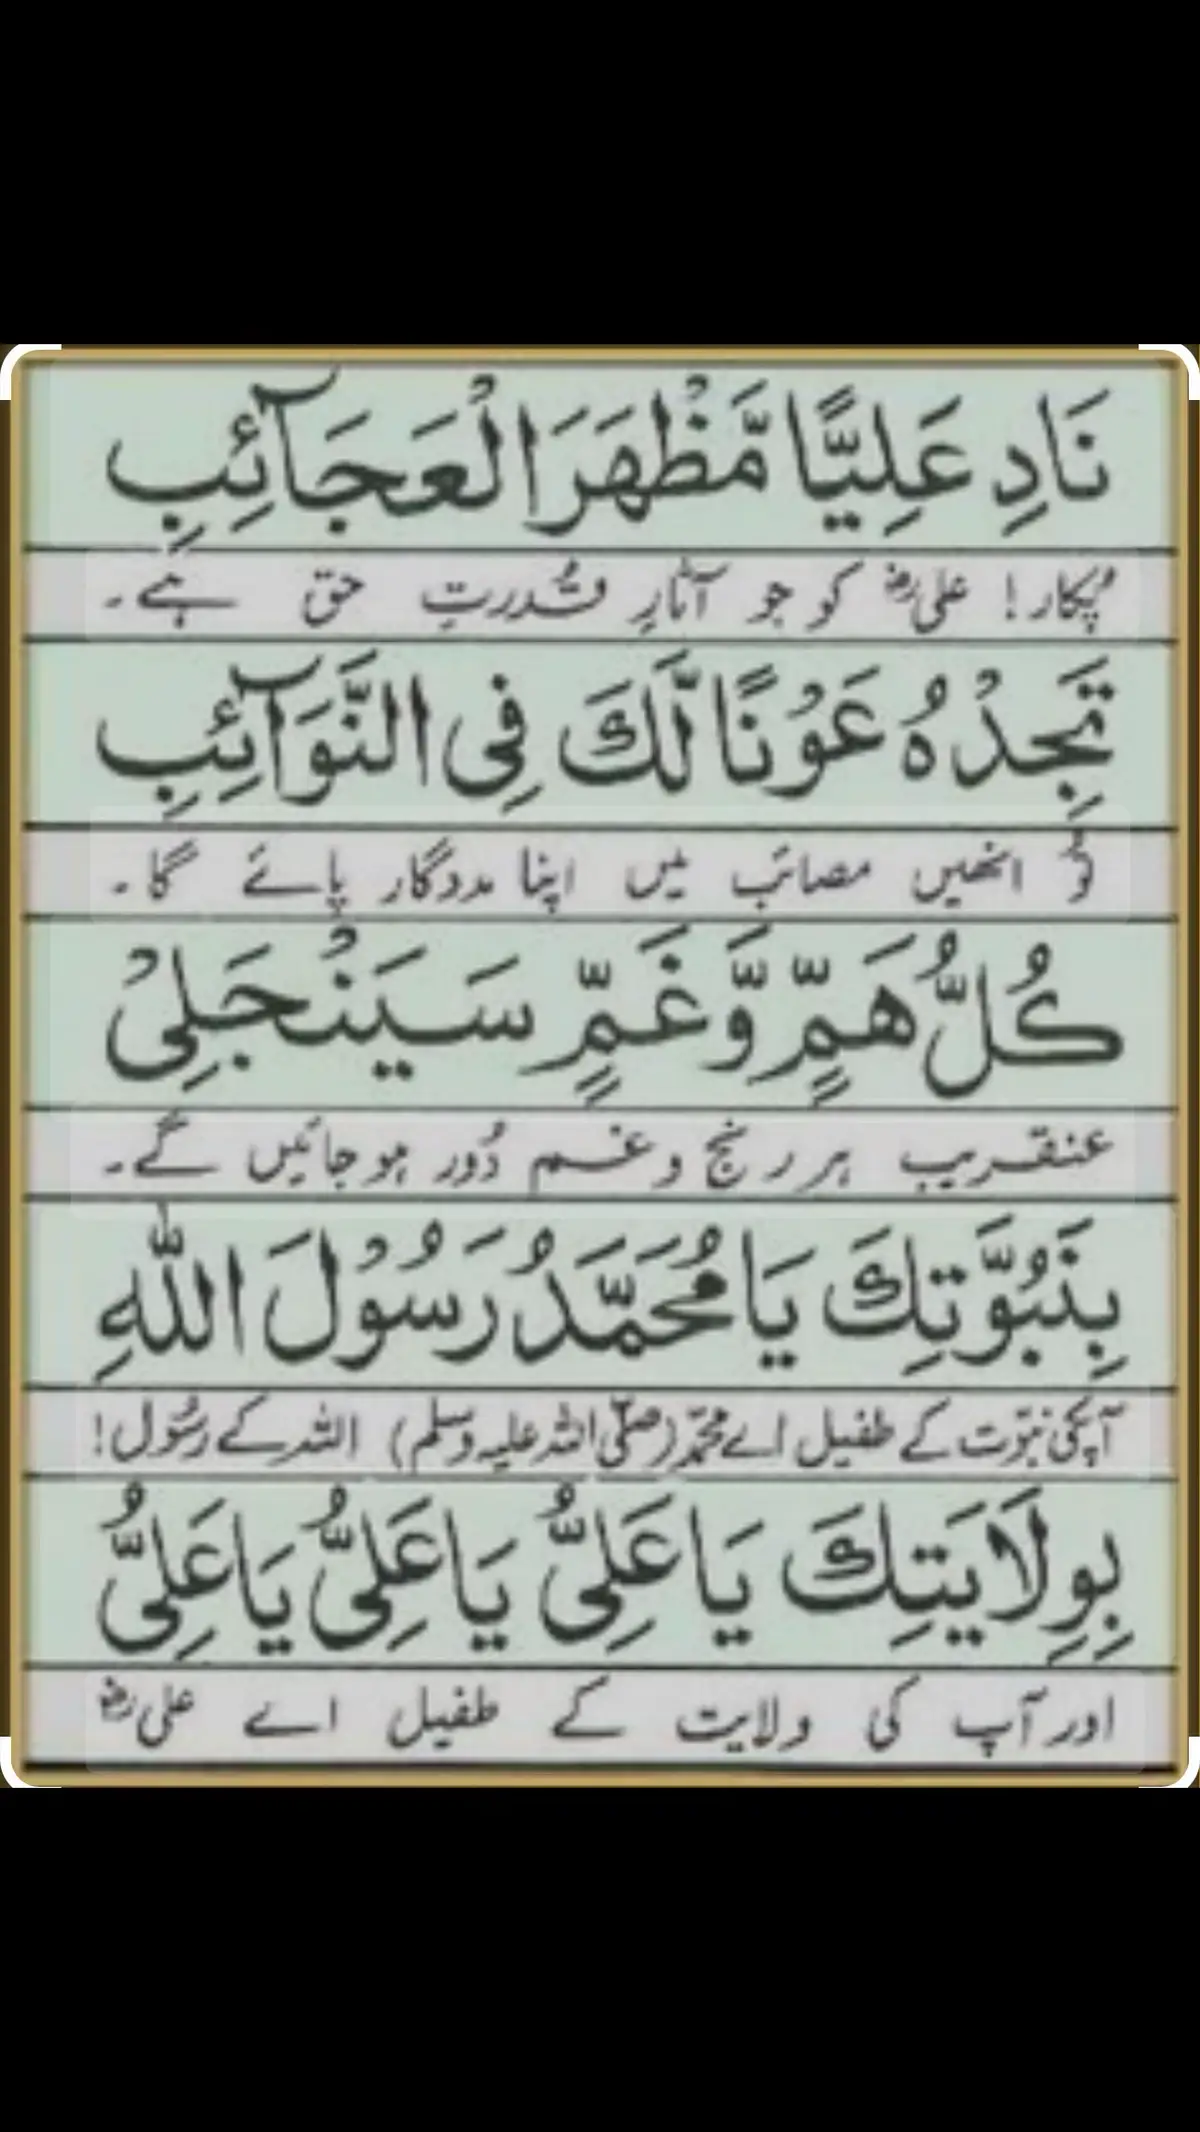 نَادِ عَلِيًّا مَّظْهَرَ الْعَجَآئِبِ
پُکار! علیؓ کو جو آثارِ قُدرتِ حق ہے۔
تَجِدْهُ عَوْنًا لَّكَ فِى النَّوَآئِبِ
تُو انھیں مصائب میں اپنا مددگار پائے گا۔
كُلُّ هَمٍّ وَّغَمٍّ سَيَنْجَلِىْ
عنقریب ہر رنج و غم دُور ہو جائیں گے۔
بِنَبُوَّتِكَ يَا مُحَمَّدُ رَسُوْلَ اللّٰهِ
آپکی نبوّت کے طفیل اے محمّد (صلّی اللہ علیہ وسلم) اللہ کے رسُول!
بِوِلَايَتِكَ يَا عَلِىُّ يَا عَلِىُّ يَا عَلِىُّ
اور آپ کی ولایت کے طفیل اے علیؓ